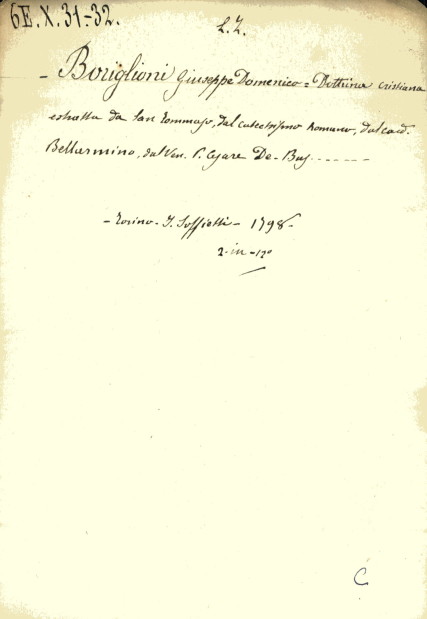 6E.X.31-32.
L.Z.
- Boriglioni Giuseppe Domenico = Dottrina cristiana
estratta da San Tommaso, dal catechismo Romano, dal card.
Bellarmino, dal Ven. P. Cesare De-Bus -------
- Torino - I. Soffietti - 1798 -
2 - in - 12º
C